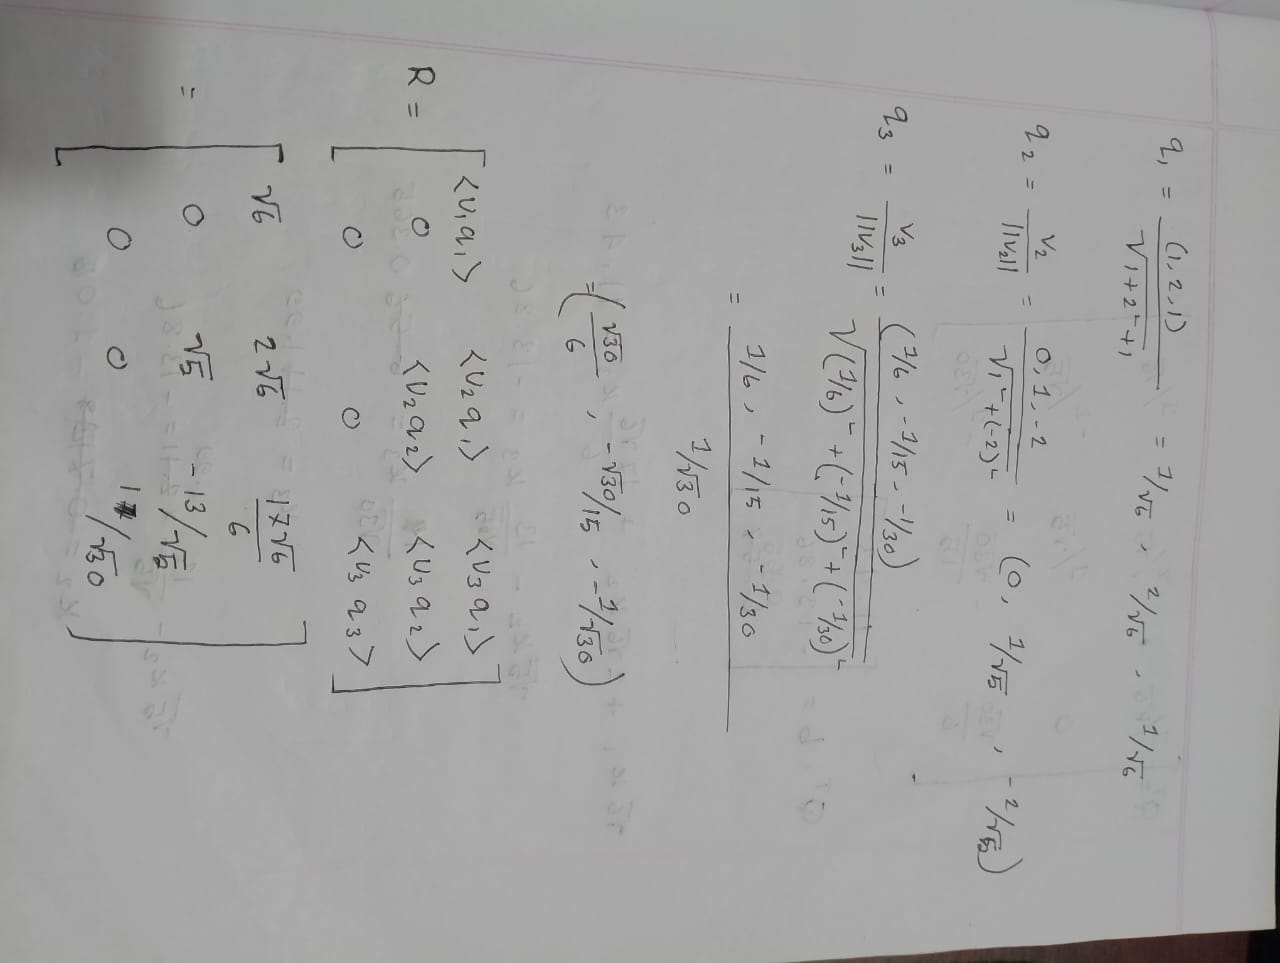 q₁ = (1, 2, 1) / √1+2²+1 = 1/√6, 2/√6, 1/√6
q₂ = v₂ / ||v₂|| = 0, 1, -2 / √1²+(-2)² = (0, 1/√5, -2/√5)
q₃ = v₃ / ||v₃|| = (1/6, -1/15 - 1/30) / √(1/6)²+(-1/15)²+(-1/30)²
= 1/6, -1/15, -1/30 / 1/√30
= (√30/6, -√30/15, -1/√30)
R = [ <v₁q₁> <v₂q₁> <v₃q₁>
0 <v₂q₂> <v₃q₂>
0 0 <v₃q₃> ]
= [ √6 2√6 17√6/6
0 √5 -13/√5
0 0 1/√30 ]